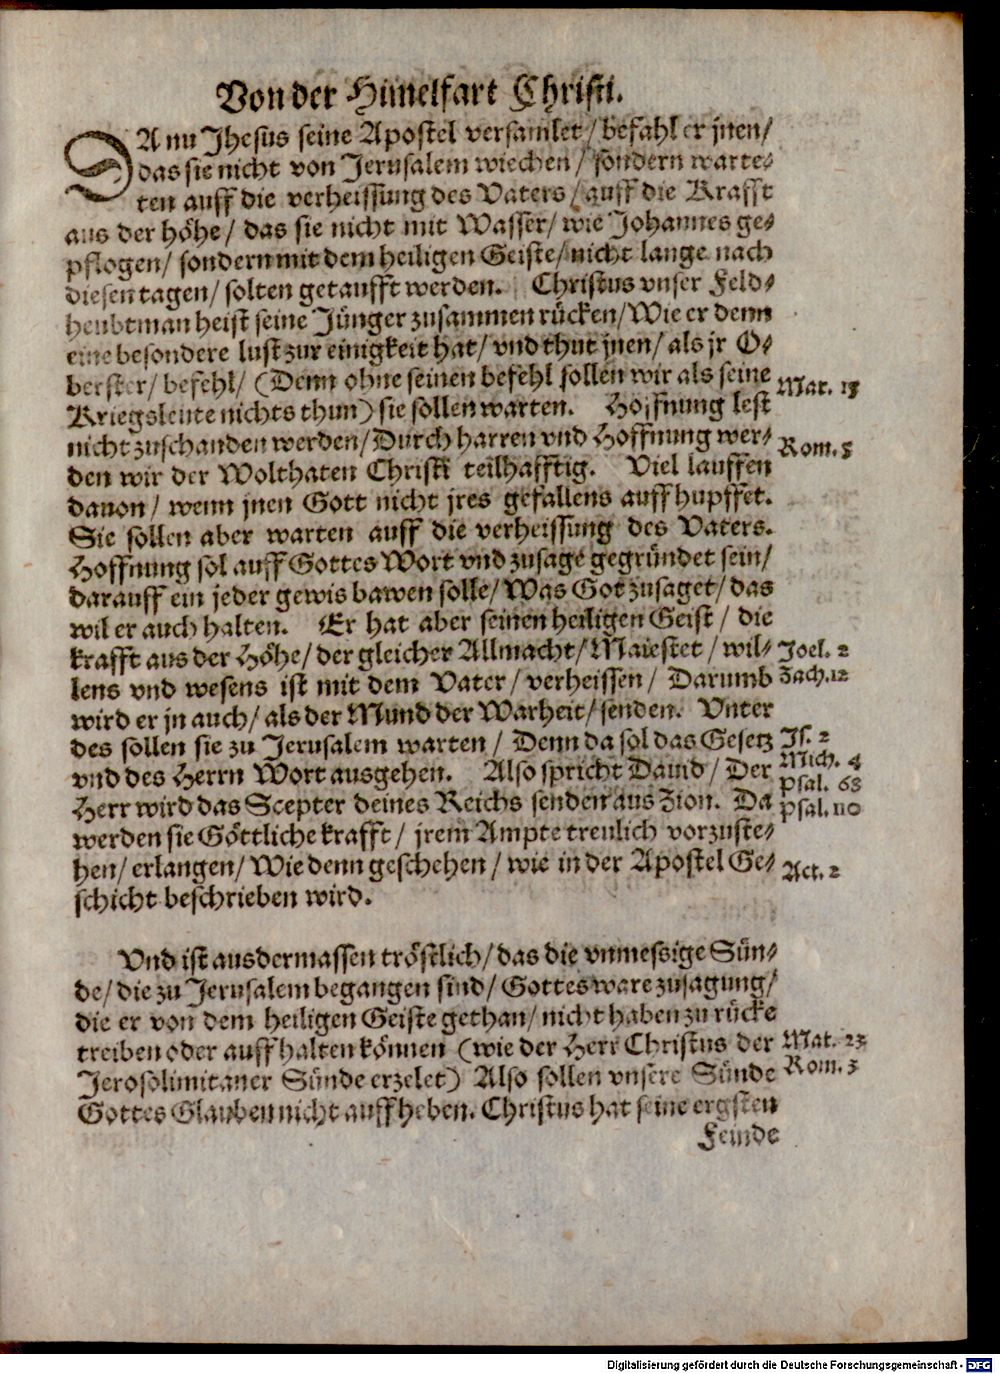 Von der Himelfart Christi.
DA nu Jhesus seine Apostel versamlet / befahl er jnen /
das sie nicht von Jerusalem wiechen / sondern warte-
ten auff die verheissung des Vaters / auff die Krafft
aus der höhe / das sie nicht mit Wasser / wie Johannes ge-
pflogen / sondern mit dem heiligen Geiste / nicht lange nach
diesen tagen / solten getaufft werden. Christus vnser Feld-
heubtman heist seine Jünger zusammen rücken / Wie er denn
eine besondere lust zur einigkeit hat / vnd thut jnen / als jr O-
berster / befehl / (Denn ohne seinen befehl sollen wir als seine
Mar. 13
Kriegsleute nichts thun) sie sollen warten. Hoffnung lest
nicht zuschanden werden / Durch harren vnd Hoffnung wer-
Rom. 5
den wir der Wolthaten Christi teilhafftig. Viel lauffen
dauon / wenn jnen Gott nicht jres gefallens auffhupffet.
Sie sollen aber warten auff die verheissung des Vaters.
Hoffnung sol auff Gottes Wort vnd zusage gegründet sein /
darauff ein jeder gewis bawen solle / Was Got zusaget / das
wil er auch halten. Er hat aber seinen heiligen Geist / die
krafft aus der Höhe / der gleicher Allmacht / Maiestet / wil-
Joel. 2
lens vnd wesens ist mit dem Vater / verheissen / Darumb
Zach. 12
wird er jn auch / als der Mund der Warheit / senden. Vnter
des sollen sie zu Jerusalem warten / Denn da sol das Gesetz
Js. 2
Mich. 4
vnd des Herrn Wort ausgehen. Also spricht Dauid / Der
Psal. 68
Herr wird das Scepter deines Reichs senden aus Zion. Da
Psal. 110
werden sie Göttliche krafft / jrem Ampte treulich vorzuste-
hen / erlangen / Wie denn geschehen / wie in der Apostel Ge-
Act. 2
schicht beschrieben wird.
Vnd ist ausdermassen tröstlich / das die vnmessige Sün-
de / die zu Jerusalem begangen sind / Gottes ware zusagung /
die er von dem heiligen Geiste gethan / nicht haben zu rücke
treiben oder auffhalten können (wie der Herr Christus der
Mat. 23
Jerosolimitaner Sünde erzelet) Also sollen vnsere Sünde
Rom. 3
Gottes Glauben nicht auffheben. Christus hat seine ergsten
Feinde
Digitalisierung gefördert durch die Deutsche Forschungsgemeinschaft - DFG